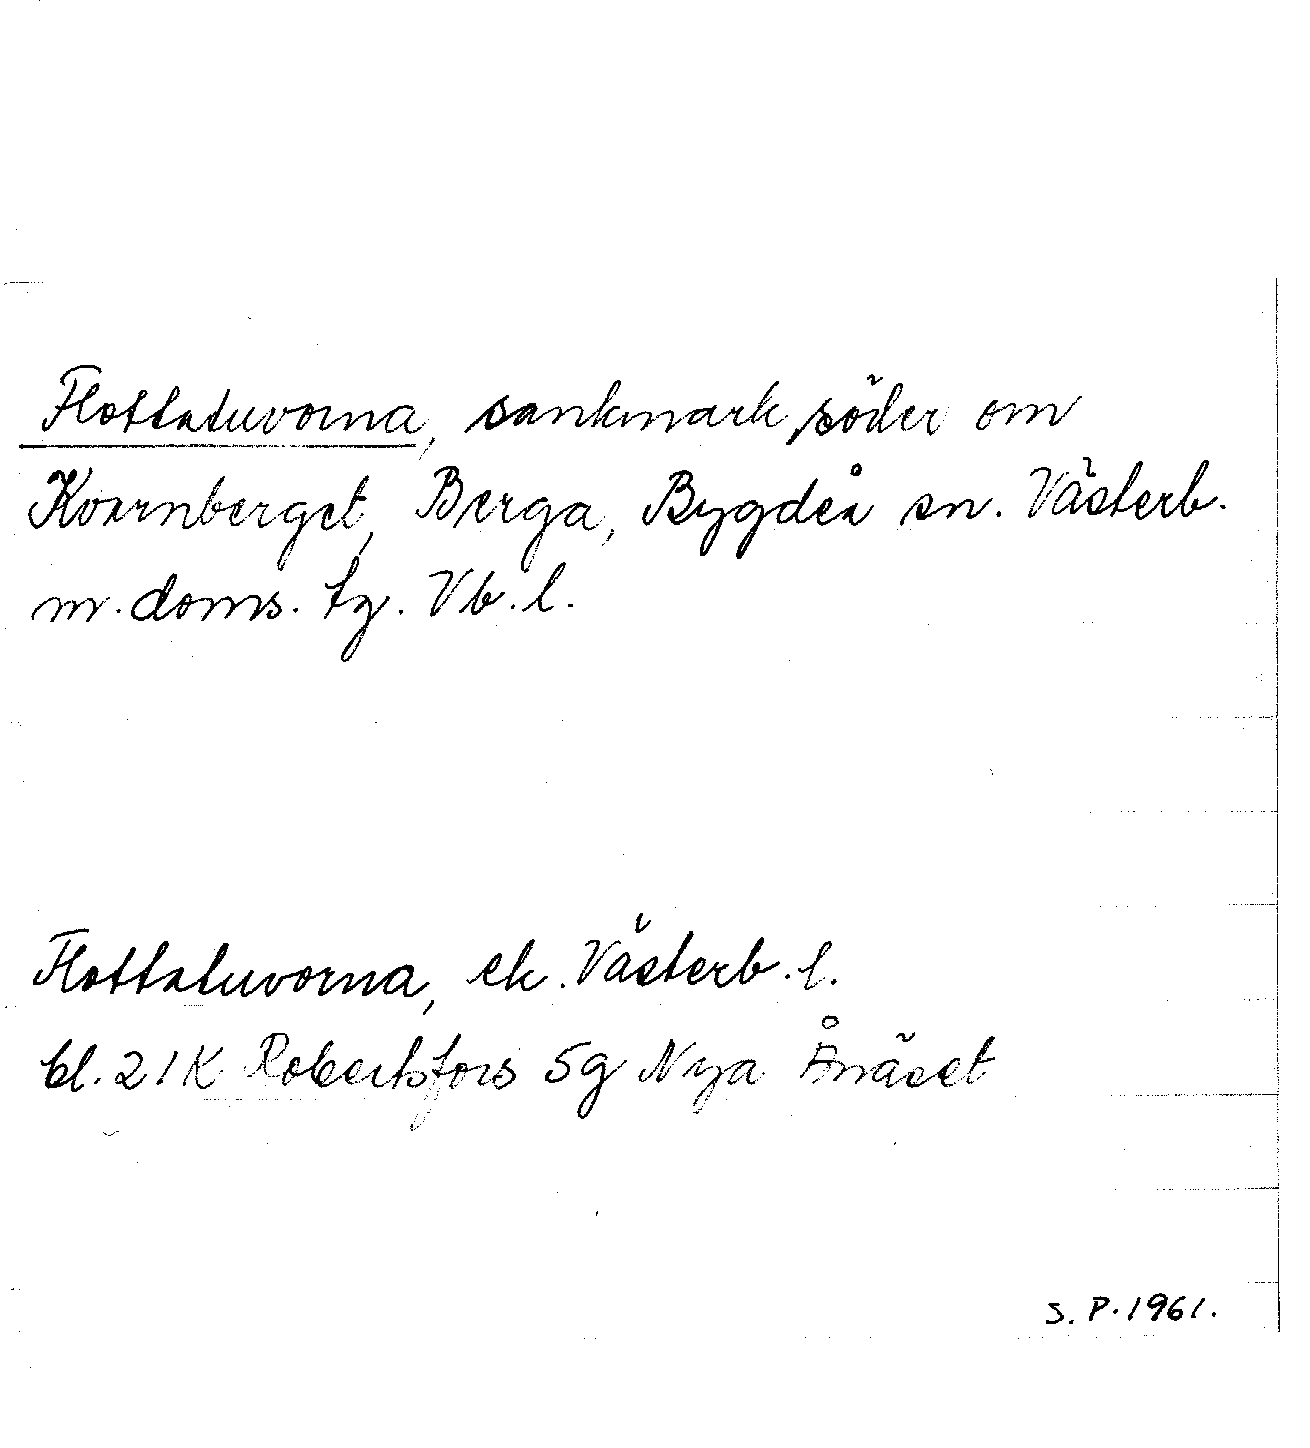 Flottatuvorna, sankmark, söder om
Kvarnberget, Berga, Bygdeå sn. Västerb.
m. doms. tg. Vb. l.
Flottatuvorna, ek. Västerb. l.
bl. 21K Robertsfors 5g Nya Ånäset
S. P. 1961.